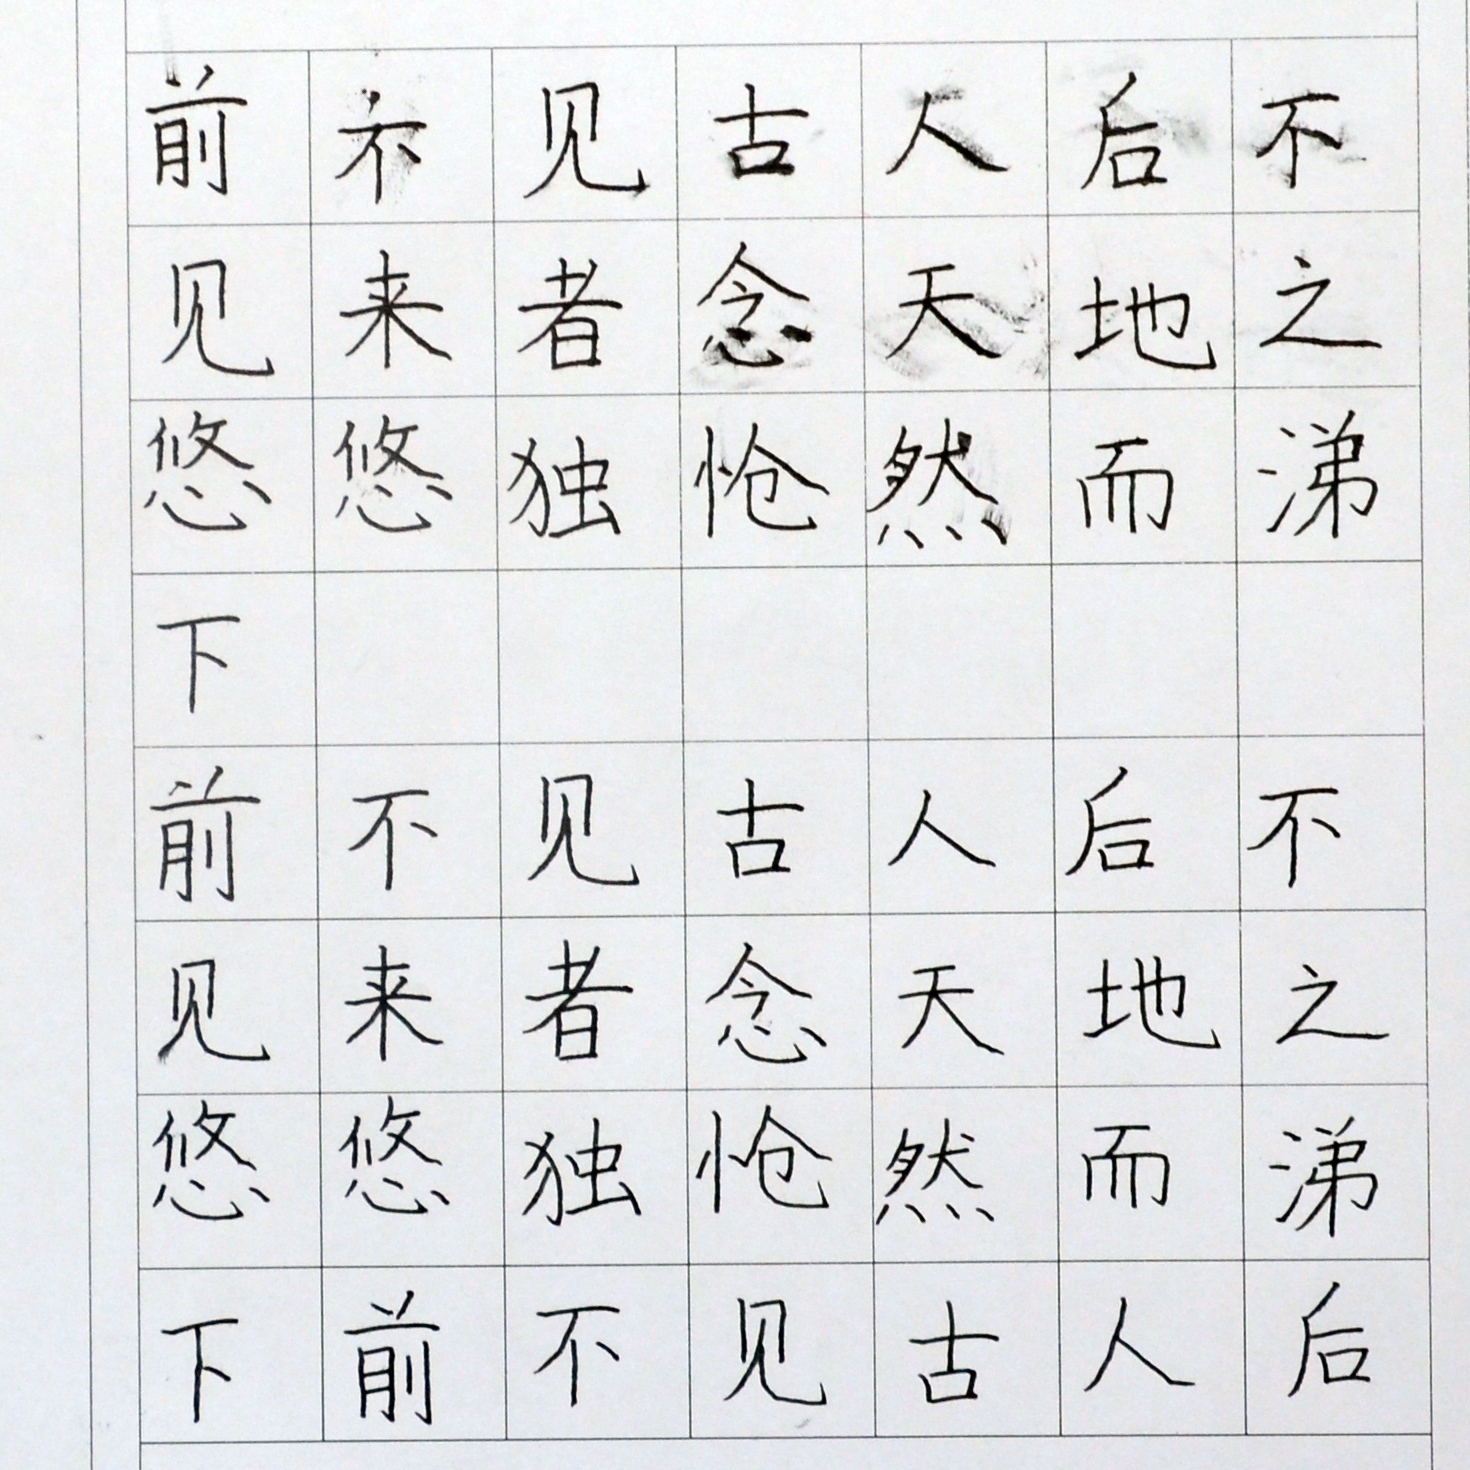 前不见古人后不
见来者念天地之
悠悠独怆然而涕
下
前不见古人后不
见来者念天地之
悠悠独怆然而涕
下前不见古人后